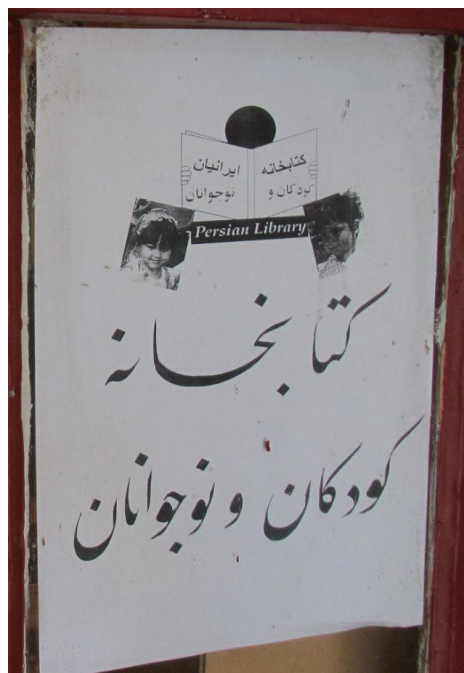 کتابخانه ایرانیان
کودکان و نوجوانان
Persian Library
کتابخانه
کودکان و نوجوانان